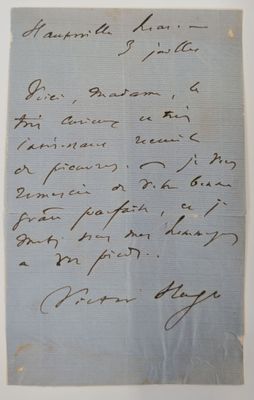 Hauteville house
3 juillet
Voici, Madame, le
très curieux et très
intéressant recueil
de gravures. — je vous
remercie de votre bonne
grâce parfaite, et je
mets tous mes hommages
à vos pieds.
Victor Hugo